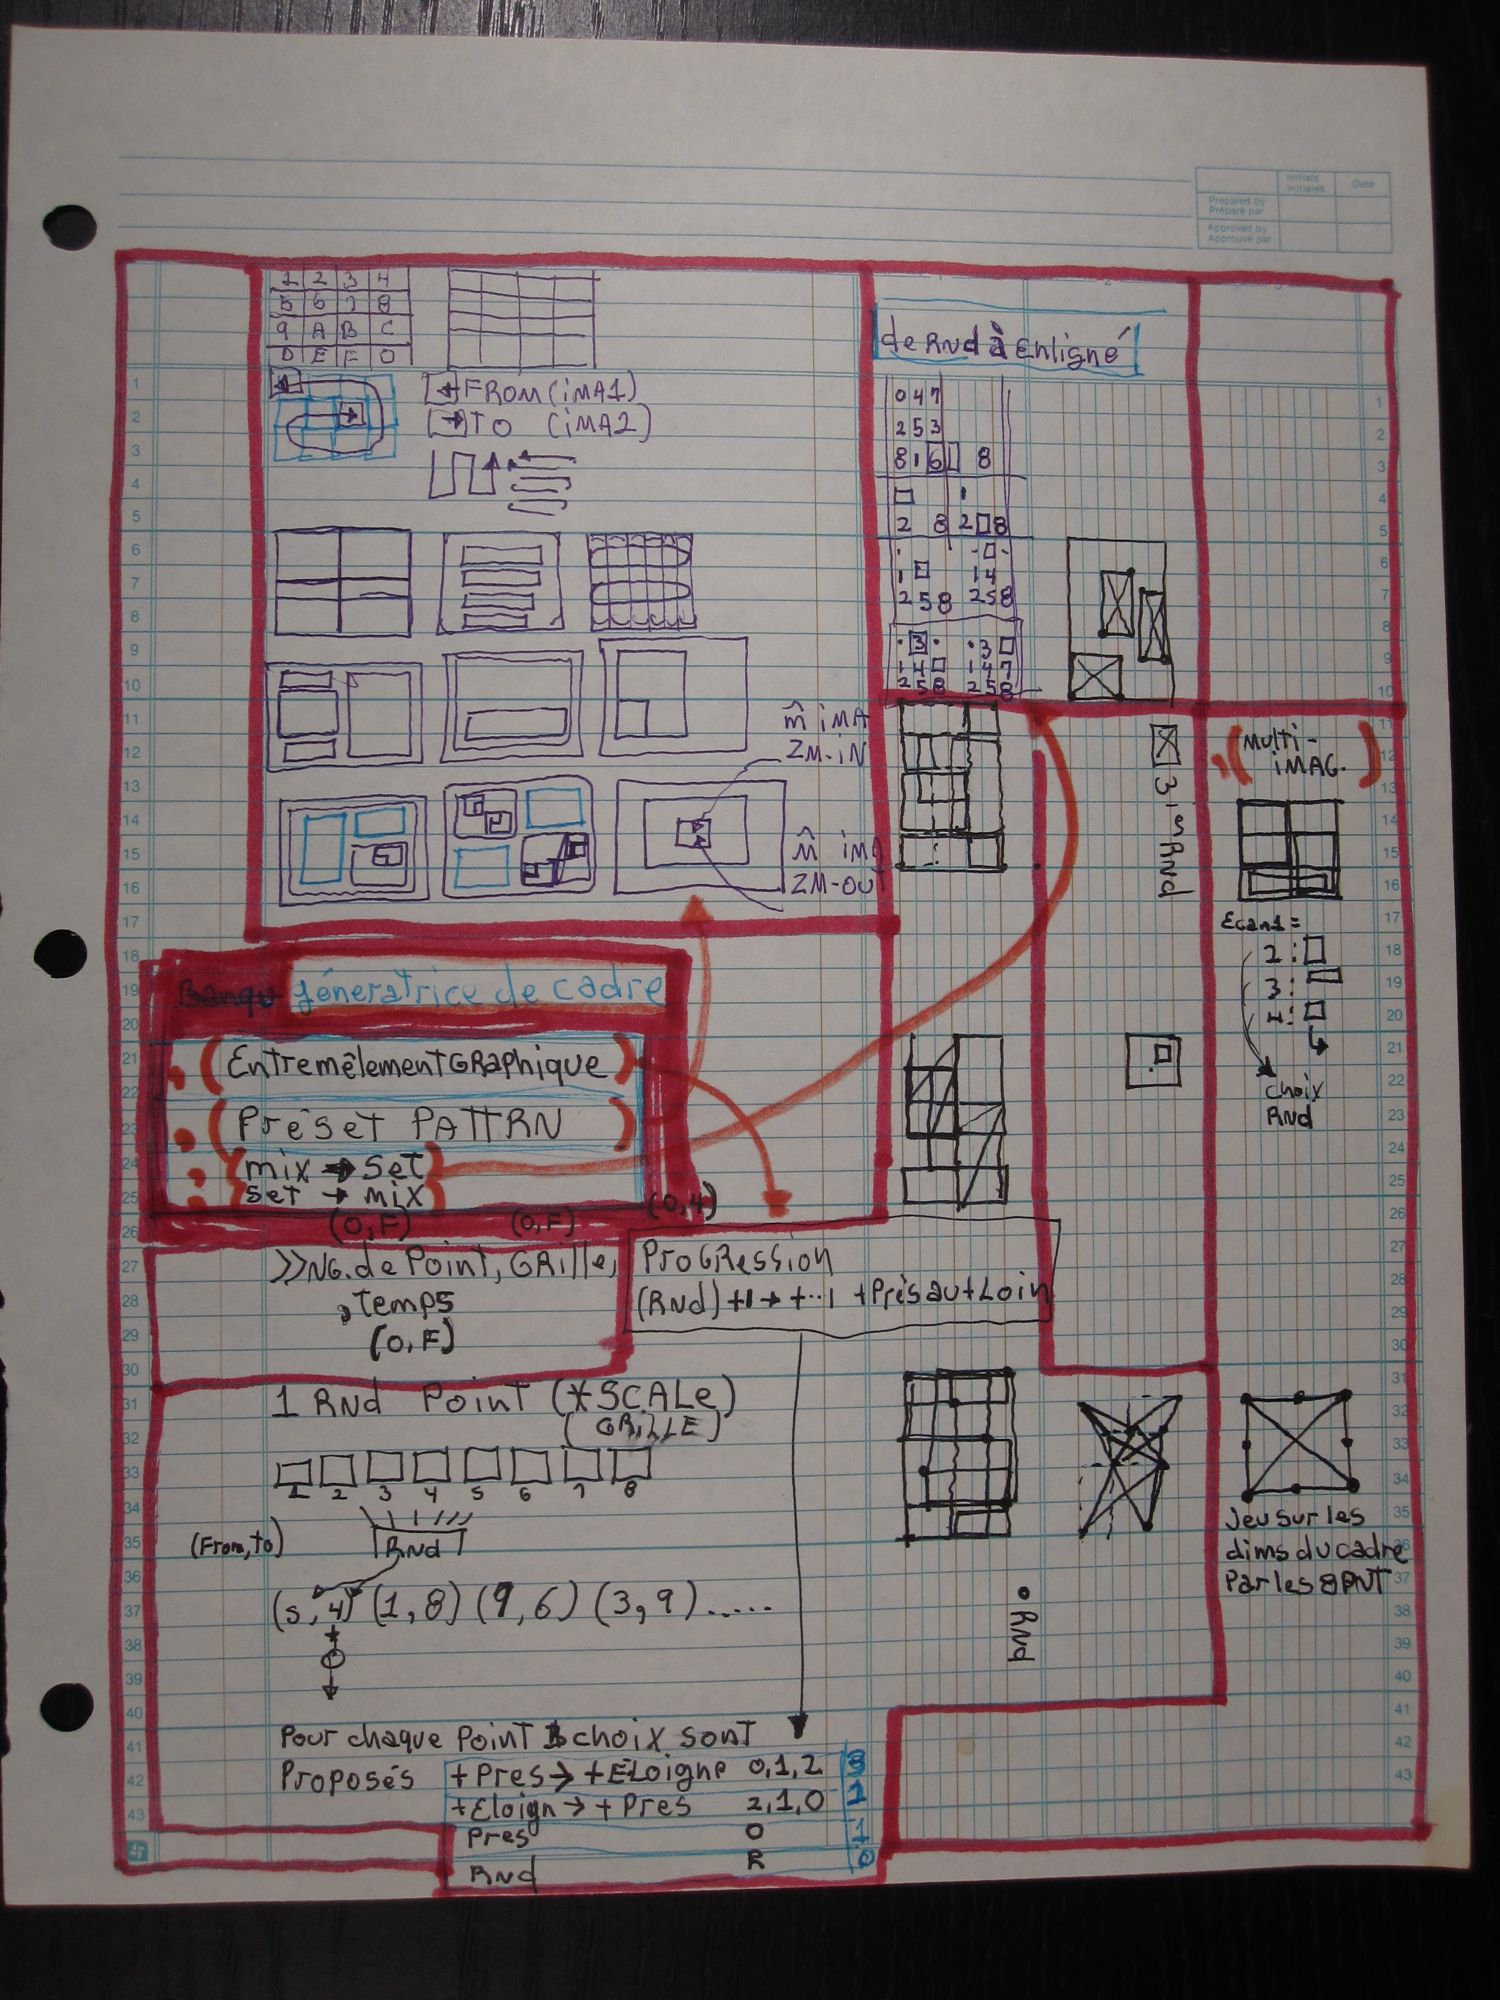 Initials
Initiales
Date
Prepared by
Préparé par
Approved by
Approuvé par
1 2 3 4
5 6 7 8
9 A B C
D E F 0
FROM (iMA1)
TO (iMA2)
m̂ iMA
ZM-iN
m̂ iMA
ZM-OUT
de RNd à Enligné
0 4 7
2 5 3
8 1 6 8
2 8 2 8
1 1 4
2 5 8 2 5 8
3 3
1 4 1 4 7
2 5 8 2 5 8
3's RNd
(Multi-
iMAG.)
Ecan1 =
2:
3:
4:
choix
RNd
géneratrice de cadre
(EntremêlementGRaphique)
(PréSet PATTRN)
{mix → Set}
{Set → mix}
(0,F) (0,F) (0,4)
>>NG. de Point, GRille,
, Temps
(0,F)
ProGRession
(RNd) +1 → +..1 +Près au + Loin
1 RNd Point (*SCALe)
(GRiLLE)
1 2 3 4 5 6 7 8
(From, to)
RNd
(s,4) (1,8) (9,6) (3,9) .....
Pour chaque Point choix sont
Proposés
+Pres → +ELoigne 0,1,2
+Eloign → + Pres 2,1,0
Pres 0
RNd R
• RNd
Jeu sur les
dims du cadre
Par les 8 PNT
1
2
3
4
5
6
7
8
9
10
11
12
13
14
15
16
17
18
19
20
21
22
23
24
25
26
27
28
29
30
31
32
33
34
35
36
37
38
39
40
41
42
43